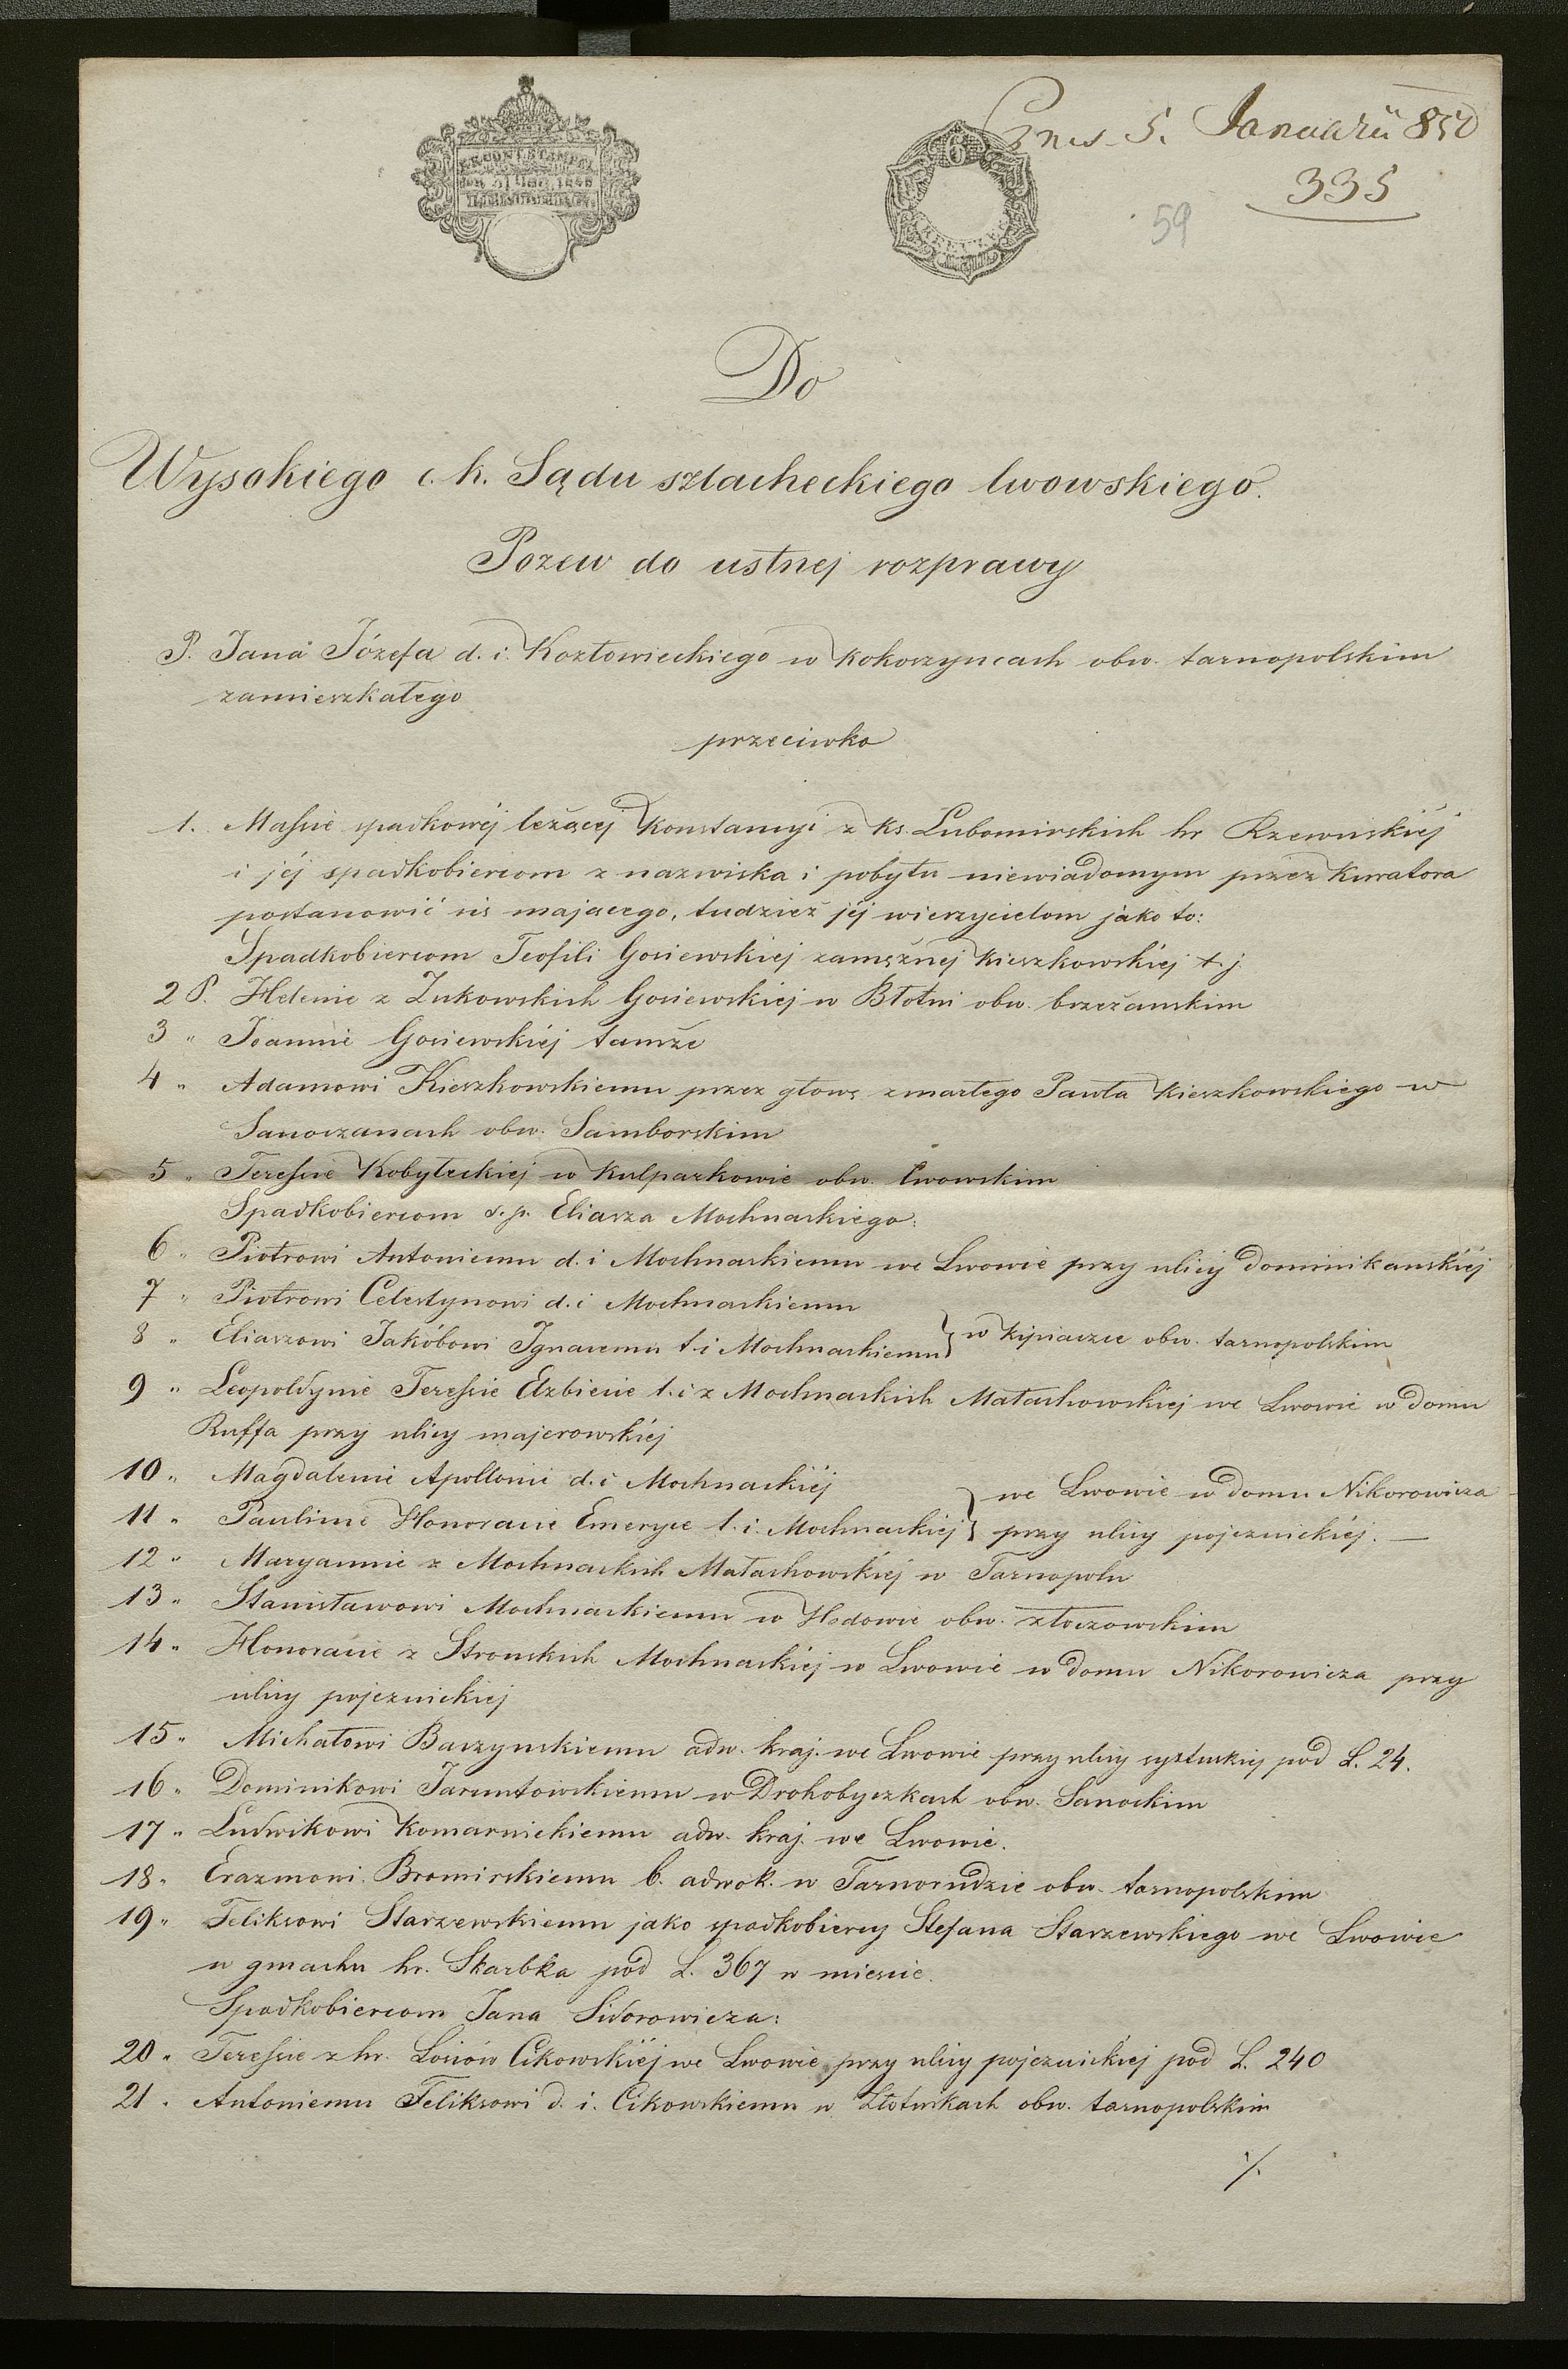 Pres. 5. Januarii 850
335
59
6
Do
Wysokiego c. k. Sądu szlacheckiego lwowskiego.
Pozew do ustnej rozprawy
P. Jana Józefa d. i. Kozłowieckiego w Kokoszyncach obw. tarnopolskim
zamieszkałego
przeciwko
1. Massie spadkowéj leżącej Konstancyi z ks. Lubomirskich hr Rzewuskiéj
i jéj spadkobiercom z nazwiska i pobytu niewiadomym przez kuratora
postanowić się mającego, tudzież jéj wierzycielom jako to:
Spadkobiercom Teofili Gosiewskiej zamężnej Kieszkowskiéj t. j.
2 P. Helenie z Żukowskich Gosiewskiej w Błotni obw. brzeżanskim
3 " Joannie Gosiewskiéj tamże
4 " Adamowi Kieszkowskiemu przez głowę zmarłego Pawła Kieszkowskiego w
Sanoczanach obw. Samborskim
5 " Teressie Kobyłeckiej w Kulparkowie obw. lwowskim
Spadkobiercom s. p. Eliasza Mochnackiego:
6 " Piotrowi Antoniemu d. i Mochnackiemu we Lwowie przy ulicy dominikanskiéj
7 " Piotrowi Celestynowi d. i Mochnackiemu
8 " Eliaszowi Jakóbowi Ignacemu t. i Mochnackiemu } w Kipiaczce obw. tarnopolskim
9 " Leopoldynie Teressie Elzbiecie t. i z Mochnackich Małachowskiej we Lwowie w domu
Ruffa przy ulicy majerowskiéj
10 " Magdalenie Apollonii d. i Mochnackiéj
11 " Paulinie Honoracie Emeryce t. i. Mochnackiéj } we Lwowie w domu Nikorowicza przy ulicy pojezuickiéj. —
12 " Maryannie z Mochnackich Małachowskiéj w Tarnopolu
13 " Stanisławowi Mochnackiemu w Hodowie obw. złoczowskim
14 " Honoracie z Stronskich Mochnackiéj w Lwowie w domu Nikorowicza przy
ulicy pojezuickiej
15 " Michałowi Baczynskiemu adw. kraj. we Lwowie przy ulicy syxtuskiej pod L. 24.
16 " Dominikowi Jaruntowskiemu w Drohobyczkach obw. Sanockim
17 " Ludwikowi Komarnickiemu adw. kraj. we Lwowie.
18 " Erazmowi Bromirskiemu b. adwok. w Tarnorudzie obw. tarnopolskim
19 " Feliksowi Starzewskiemu jako spadkobiercy Stefana Starzewskiego we Lwowie
w gmachu hr. Skarbka pod L. 367 w miescie.
Spadkobiercom Jana Sidorowicza:
20 " Teressie z hr. Łosiów Cikowskiéj we Lwowie przy ulicy pojezuickiej pod L. 240
21 " Antoniemu Feliksowi d. i. Cikowskiemu w obw. tarnopolskim
./.